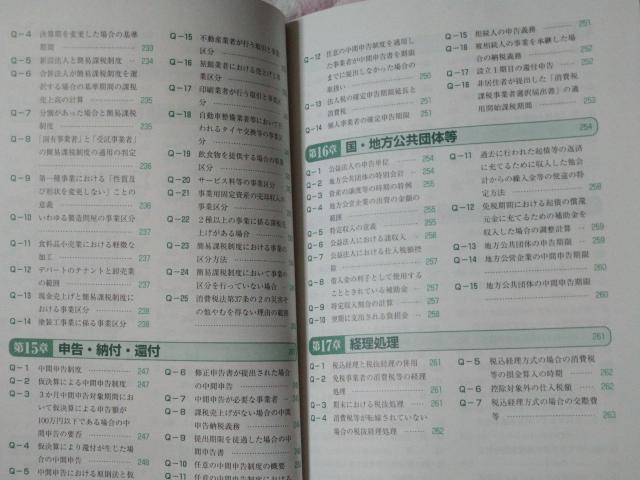 Q－4 決算期を変更した場合の基準
期間 233
Q－5 新設法人と簡易課税制度 234
Q－6 合併法人が簡易課税制度を選
択する場合の基準期間の課税
売上高の計算 235
Q－7 分割があった場合と簡易課税
制度 235
Q－8 「固有事業者」と「受託事業者」の
簡易課税制度の適用の判定
236
Q－9 第一種事業における「性質及
び形状を変更しない」ことの
意義 236
Q－10 いわゆる製造問屋の事業区分
Q－11 食料品小売業における軽微な
加工 237
Q－12 デパートのテナントと卸売業
の範囲 237
Q－13 現金売上げと簡易課税制度に
おける事業区分 238
Q－14 塗装工事業に係る事業区分
238
Q－15 不動産業者が行う取引と事業
区分
Q－16 旅館業者における売上げと事
業区分
Q－17 印刷業者が行う取引と事業区
分
Q－18 自動車整備業者等において行
われるタイヤ交換等の事業区
分
Q－19 飲食物を提供する場合の事業
区分
Q－20 サービス料等の事業区分
Q－21 事業用固定資産の売却収入の
事業区分
Q－22 2種以上の事業に係る課税売
上げがある場合
Q－23 簡易課税制度における事業の
区分方法
Q－24 簡易課税制度において事業の
区分を行っていない場合
Q－25 消費税法第37条の2の災害そ
の他やむを得ない理由の範囲
第15章 申告・納付・還付
Q－1 中間申告制度 247
Q－2 仮決算による中間申告制度 247
Q－3 3か月中間申告対象期間にお
いて仮決算による申告額が
100万円以下である場合の中
間申告の要否 247
Q－4 仮決算により還付が生じた場
合の中間申告 248
Q－5 中間申告における原則法と仮
Q－6 修正申告書が提出された場合
の中間申告
Q－7 中間申告が必要な事業者
Q－8 課税売上げがない場合の中間
申告納税義務
Q－9 提出期限を徒過した場合の中
間申告書
Q－10 任意の中間申告制度の概要
Q－12 任意の中間申告制度を適用し
た事業者が中間申告書を期限
までに提出しなかった場合の
取扱い 250
Q－13 法人税の確定申告期限延長と
消費税 251
Q－14 個人事業者の確定申告期限
251
Q－15 相続人の申告義務 251
Q－16 被相続人の事業を承継した場
合の納税義務 252
Q－17 設立1期目の還付申告 252
Q－18 非居住者が提出した「消費税
課税事業者選択届出書」の適
用開始課税期間 253
第16章 国・地方公共団体等 254
Q－1 公益法人の申告単位 254
Q－2 地方公共団体の特別会計 254
Q－3 資産の譲渡等の時期の特例 256
Q－4 地方公営企業の出資の金額の
範囲 256
Q－5 特定収入の意義 256
Q－6 公益法人における諸収入 256
Q－7 公益法人における仕入税額控
除 256
Q－8 借入金の利子として使用する
こととされている補助金 257
Q－9 特定収入割合の計算 258
Q－10 翌期に支出される負担金 258
Q－11 過去に行われた起債等の返済
に充てるために収入した他会
計からの繰入金等の使途の特
定方法 258
Q－12 免税期間における起債の償還
元金に充てるための補助金を
収入した場合の調整計算 259
Q－13 地方公共団体の申告期限 259
Q－14 地方公営企業の中間申告期限
260
Q－15 地方公共団体の中間申告期限
260
第17章 経理処理 261
Q－1 税込経理と税抜経理の併用 261
Q－2 免税事業者の消費税等の経理
処理 261
Q－3 期末における税抜処理 261
Q－4 消費税等が転嫁されていない
場合の税抜経理処理 262
Q－5 税込経理方式の場合の消費税
等の損金算入の時期 262
Q－6 控除対象外の仕入税額 262
Q－7 税込経理方式の場合の交際費
等 263